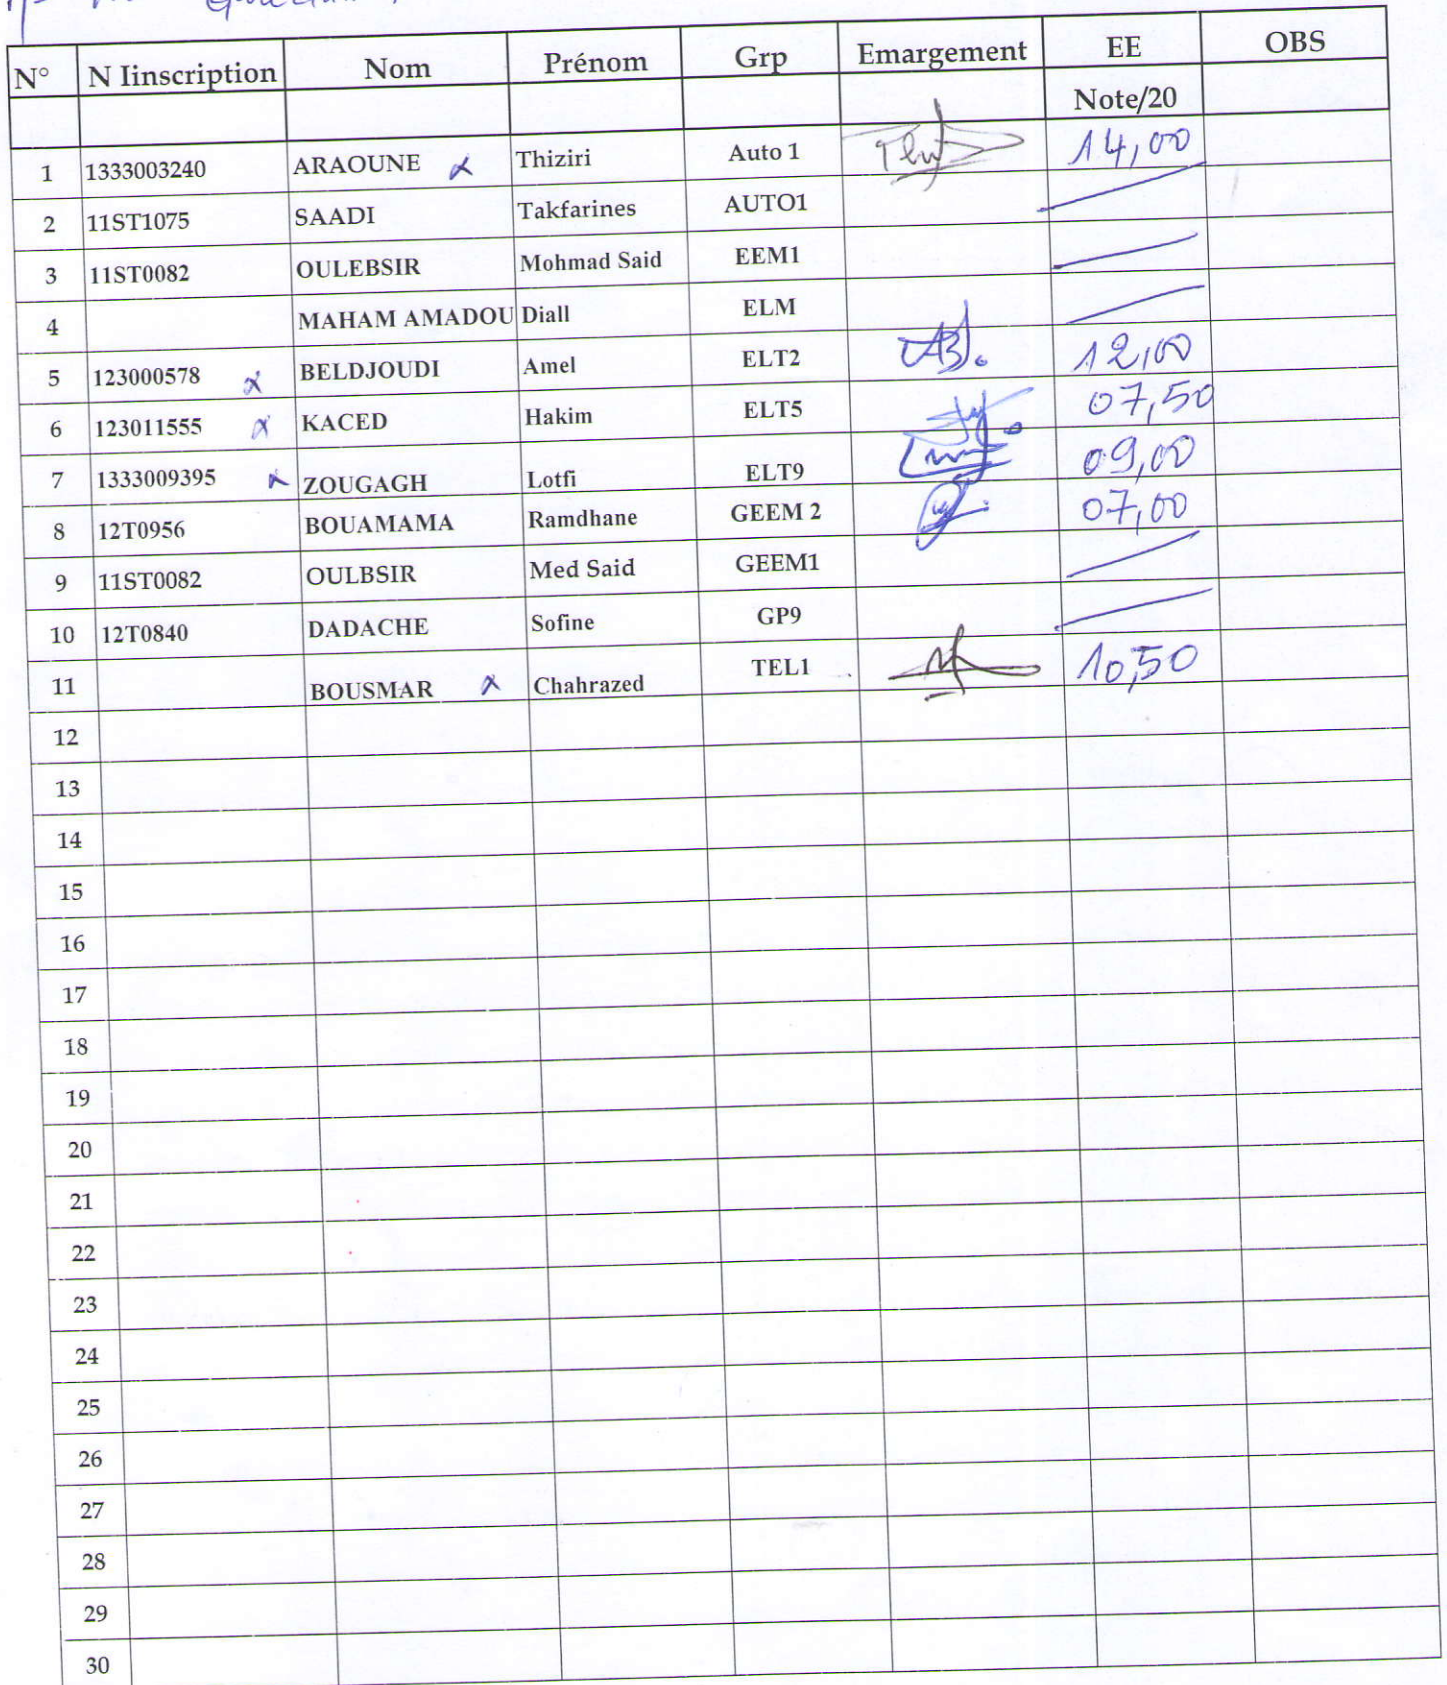 N° N Iinscription Nom Prénom Grp Emargement EE OBS
Note/20
1 1333003240 ARAOUNE Thiziri Auto 1 14,00
2 11ST1075 SAADI Takfarines AUTO1
3 11ST0082 OULEBSIR Mohmad Said EEM1
4 MAHAM AMADOU Diall ELM
5 123000578 BELDJOUDI Amel ELT2 12,00
6 123011555 KACED Hakim ELT5 07,50
7 1333009395 ZOUGAGH Lotfi ELT9 09,00
8 12T0956 BOUAMAMA Ramdhane GEEM 2 07,00
9 11ST0082 OULBSIR Med Said GEEM1
10 12T0840 DADACHE Sofine GP9
11 BOUSMAR Chahrazed TEL1 10,50
12
13
14
15
16
17
18
19
20
21
22
23
24
25
26
27
28
29
30